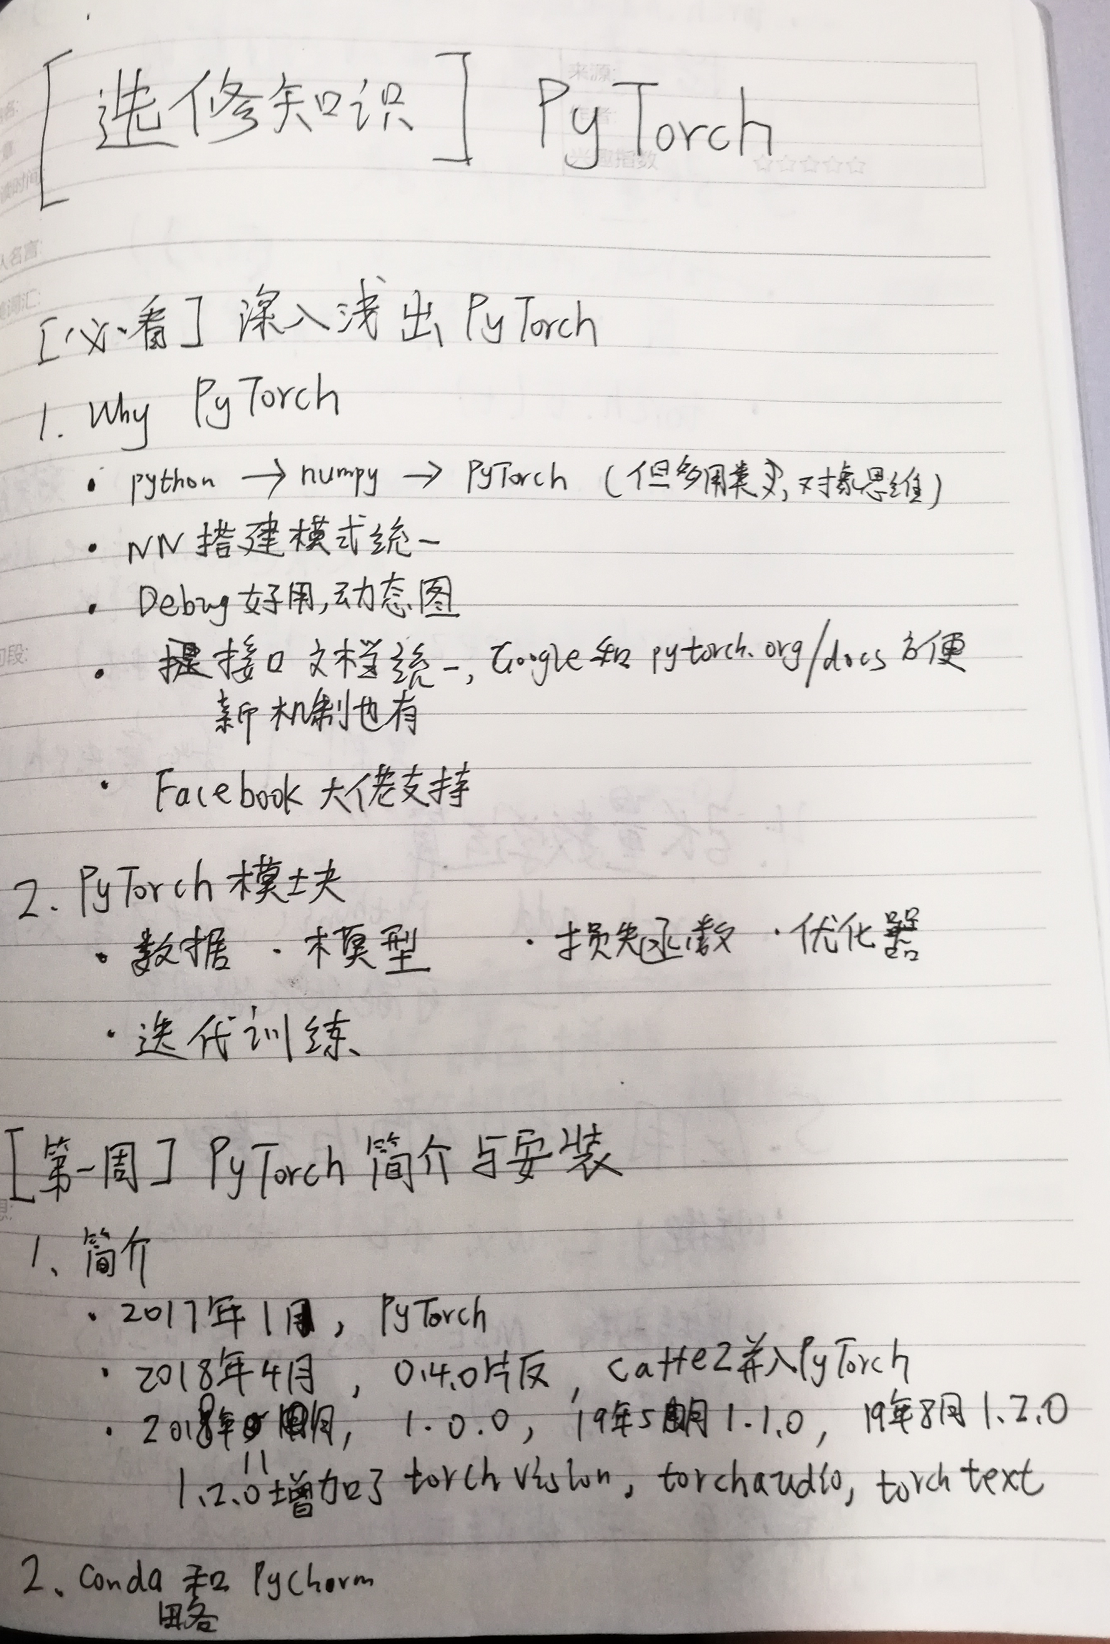 [选修知识] PyTorch
[必看] 深入浅出 PyTorch
1. Why PyTorch
· python → numpy → PyTorch (但多用类, 对象思维)
· NN 搭建模式统一
· Debug 好用, 动态图
· 接口文档统一, Google 和 pytorch.org/docs 方便
新机制也有
· Facebook 大佬支持
2. PyTorch 模块
· 数据 · 模型 · 损失函数 · 优化器
· 迭代训练
[第一周] PyTorch 简介与安装
1、简介
· 2017年1月, PyTorch
· 2018年4月, 0.4.0版, caffe2并入PyTorch
· 2018年 11月, 1.0.0, 19年5月 1.1.0, 19年8月 1.2.0
1.2.0增加了 torchvision, torchaudio, torchtext
2、Conda 和 Pycharm
略